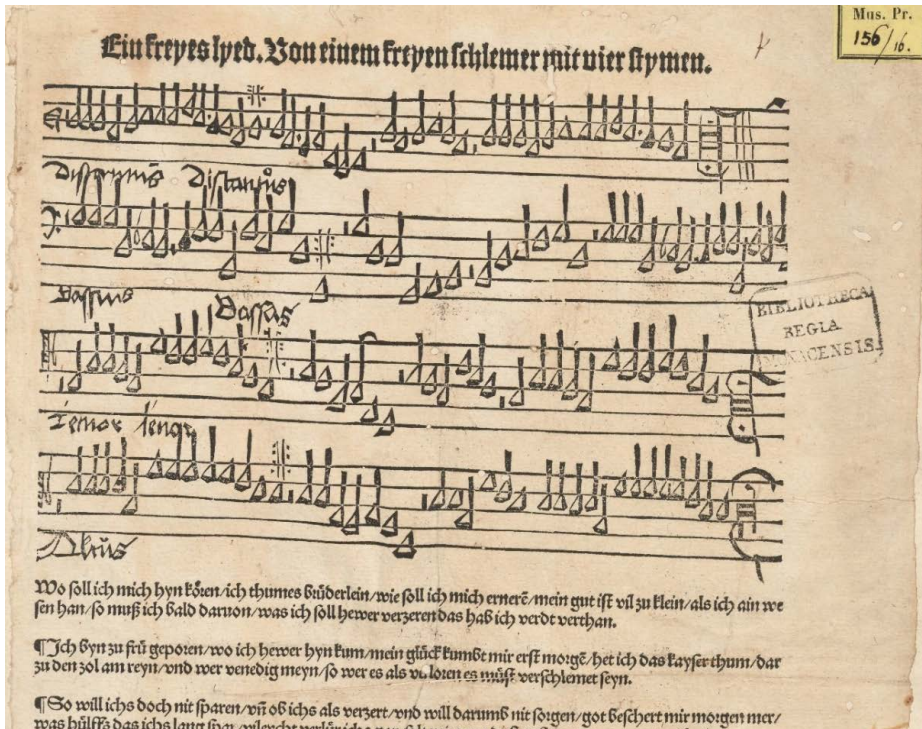 Mus. Pr.
156/16.
Ein freyes lyed. Von einem freyen schlemer mit vier stymen.
Discantus Discantus
Bassus Bassus
BIBLIOTHECA
REGIA
MONACENSIS.
Tenor tenor
Altus
Wo soll ich mich hyn kören/ich thumes brüderlein/wie soll ich mich ernerē/mein gut ist vil zu klein/als ich ain we
sen han/so muß ich bald daruon/was ich soll hewer verzeren das hab ich verdt verthan.
¶Ich byn zu frü geporen/wo ich hewer hyn kum/mein glück kumbt mir erst morgē/het ich das kayser thum/dar
zu den zol am reyn/vnd wer venedig meyn/so wer es als verloren es müst verschlemet seyn.
¶So will ichs doch nit sparen/vn̄ ob ichs als verzert/vnd will darumb nit sorgen/got beschert mir morgen mer/
was hülffs das ichs lang spar/vileycht verlür ich